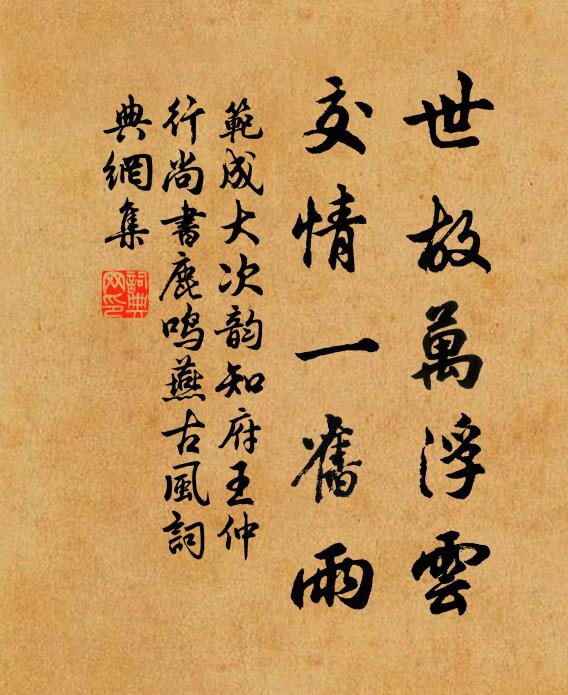 世故萬浮雲
交情一舊雨
範成大次韵知府王仲
行尚書鹿鳴燕古風詞
典網集
詞典網印